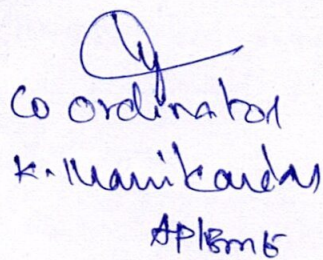 Co ordinator
K. Manikandan
AP/BME